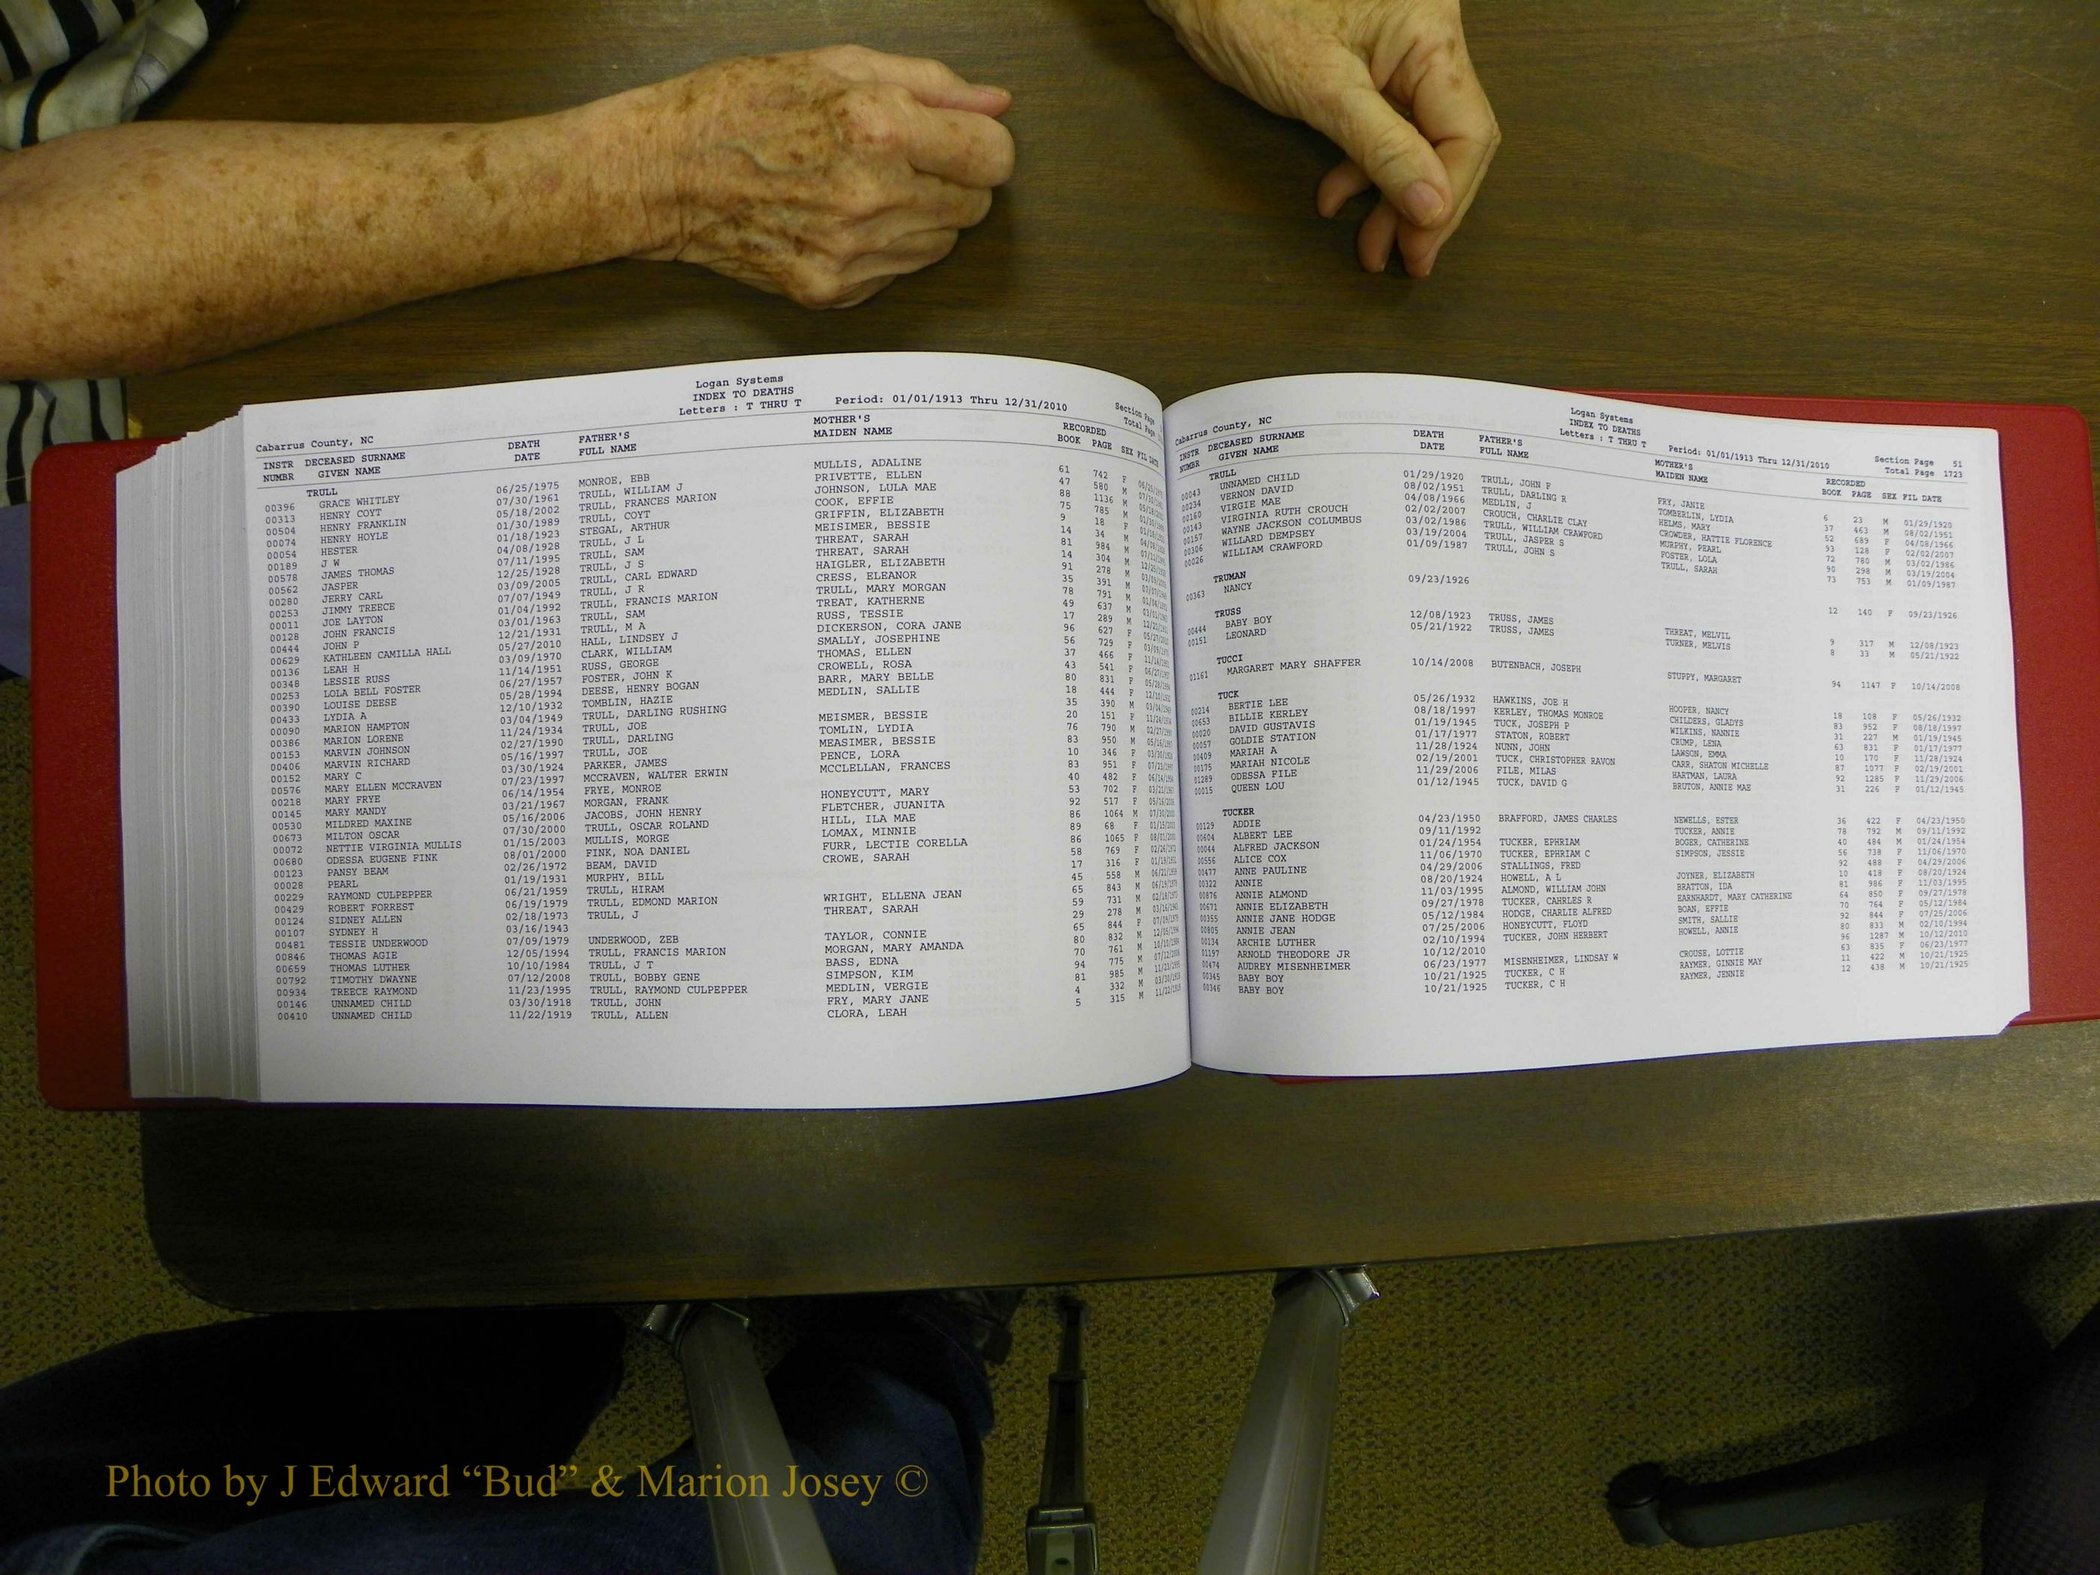 Logan Systems
INDEX TO DEATHS
Cabarrus County, NC Letters : T THRU T Period: 01/01/1913 Thru 12/31/2010 Section Page
Total Page
INSTR DECEASED SURNAME DEATH FATHER'S MOTHER'S RECORDED
NUMBR GIVEN NAME DATE FULL NAME MAIDEN NAME BOOK PAGE SEX FIL DATE
TRULL
00396 GRACE WHITLEY 06/25/1975 MONROE, EBB MULLIS, ADALINE 61 742 F
00313 HENRY COYT 07/30/1961 TRULL, WILLIAM J PRIVETTE, ELLEN 47 580 M
00504 HENRY FRANKLIN 05/18/2002 TRULL, FRANCES MARION JOHNSON, LULA MAE 88 1136 M
00074 HENRY HOYLE 01/30/1989 TRULL, COYT COOK, EFFIE 75 785 M
00054 HESTER 01/18/1923 STEGAL, ARTHUR GRIFFIN, ELIZABETH 9 18 F
00189 J W 04/08/1928 TRULL, J L MEISIMER, BESSIE 14 34 M
00578 JAMES THOMAS 07/11/1995 TRULL, SAM THREAT, SARAH 81 984 M
00562 JASPER 12/25/1928 TRULL, J S THREAT, SARAH 14 304 M
00280 JERRY CARL 03/09/2005 TRULL, CARL EDWARD HAIGLER, ELIZABETH 91 278 M
00253 JIMMY TREECE 07/07/1949 TRULL, J R CRESS, ELEANOR 35 391 M
00011 JOE LAYTON 01/04/1992 TRULL, FRANCIS MARION TRULL, MARY MORGAN 78 791 M
00128 JOHN FRANCIS 03/01/1963 TRULL, SAM TREAT, KATHERNE 49 637 M
00444 JOHN P 12/21/1931 TRULL, M A RUSS, TESSIE 17 289 M
00629 KATHLEEN CAMILLA HALL 05/27/2010 HALL, LINDSEY J DICKERSON, CORA JANE 96 627 F
00136 LEAH H 03/09/1970 CLARK, WILLIAM SMALLY, JOSEPHINE 56 729 F
00348 LESSIE RUSS 11/14/1951 RUSS, GEORGE THOMAS, ELLEN 37 466 F
00253 LOLA BELL FOSTER 06/27/1957 FOSTER, JOHN K CROWELL, ROSA 43 541 F
00390 LOUISE DEESE 05/28/1994 DEESE, HENRY BOGAN BARR, MARY BELLE 80 831 F
00433 LYDIA A 12/10/1932 TOMBLIN, HAZIE MEDLIN, SALLIE 18 444 F
00090 MARION HAMPTON 03/04/1949 TRULL, DARLING RUSHING 35 390 M
00386 MARION LORENE 11/24/1934 TRULL, JOE MEISMER, BESSIE 20 151 F
00153 MARVIN JOHNSON 02/27/1990 TRULL, DARLING TOMLIN, LYDIA 76 790 M
00406 MARVIN RICHARD 05/16/1997 TRULL, JOE MEASIMER, BESSIE 83 950 M
00152 MARY C 03/30/1924 PARKER, JAMES PENCE, LORA 10 346 F
00576 MARY ELLEN MCCRAVEN 07/23/1997 MCCRAVEN, WALTER ERWIN MCCLELLAN, FRANCES 83 951 F
00218 MARY FRYE 06/14/1954 FRYE, MONROE 40 482 F
00145 MARY MANDY 03/21/1967 MORGAN, FRANK HONEYCUTT, MARY 53 702 F
00530 MILDRED MAXINE 05/16/2006 JACOBS, JOHN HENRY FLETCHER, JUANITA 92 517 F
00673 MILTON OSCAR 07/30/2000 TRULL, OSCAR ROLAND HILL, ILA MAE 86 1064 M
00072 NETTIE VIRGINIA MULLIS 01/15/2003 MULLIS, MORGE LOMAX, MINNIE 89 68 F
00680 ODESSA EUGENE FINK 08/01/2000 FINK, NOA DANIEL FURR, LECTIE CORELLA 86 1065 F
00123 PANSY BEAM 02/26/1972 BEAM, DAVID CROWE, SARAH 58 769 F
00028 PEARL 01/19/1931 MURPHY, BILL 17 316 F
00229 RAYMOND CULPEPPER 06/21/1959 TRULL, HIRAM 45 558 M
00429 ROBERT FORREST 06/19/1979 TRULL, EDMOND MARION WRIGHT, ELLENA JEAN 65 843 M
00124 SIDNEY ALLEN 02/18/1973 TRULL, J THREAT, SARAH 59 731 M
00107 SYDNEY H 03/16/1943 29 278 M
00481 TESSIE UNDERWOOD 07/09/1979 UNDERWOOD, ZEB TAYLOR, CONNIE 65 844 F
00846 THOMAS AGIE 12/05/1994 TRULL, FRANCIS MARION MORGAN, MARY AMANDA 80 832 M
00659 THOMAS LUTHER 10/10/1984 TRULL, J T BASS, EDNA 70 761 M
00792 TIMOTHY DWAYNE 07/12/2008 TRULL, BOBBY GENE SIMPSON, KIM 94 775 M
00934 TREECE RAYMOND 11/23/1995 TRULL, RAYMOND CULPEPPER MEDLIN, VERGIE 81 985 M
00146 UNNAMED CHILD 03/30/1918 TRULL, JOHN FRY, MARY JANE 4 332 M
00410 UNNAMED CHILD 11/22/1919 TRULL, ALLEN CLORA, LEAH 5 315 M
Logan Systems
INDEX TO DEATHS
Cabarrus County, NC Letters : T THRU T Period: 01/01/1913 Thru 12/31/2010 Section Page 51
Total Page 1723
INSTR DECEASED SURNAME DEATH FATHER'S MOTHER'S RECORDED
NUMBR GIVEN NAME DATE FULL NAME MAIDEN NAME BOOK PAGE SEX FIL DATE
TRULL
00043 UNNAMED CHILD 01/29/1920 TRULL, JOHN F FRY, JANIE 6 23 M 01/29/1920
00234 VERNON DAVID 08/02/1951 TRULL, DARLING R TOMBERLIN, LYDIA 37 463 M 08/02/1951
00160 VIRGIE MAE 04/08/1966 MEDLIN, J HELMS, MARY 52 689 F 04/08/1966
00143 VIRGINIA RUTH CROUCH 02/02/2007 CROUCH, CHARLIE CLAY CROWDER, HATTIE FLORENCE 93 128 F 02/02/2007
00157 WAYNE JACKSON COLUMBUS 03/02/1986 TRULL, WILLIAM CRAWFORD MURPHY, PEARL 72 780 M 03/02/1986
00306 WILLARD DEMPSEY 03/19/2004 TRULL, JASPER S FOSTER, LOLA 90 298 M 03/19/2004
00026 WILLIAM CRAWFORD 01/09/1987 TRULL, JOHN S TRULL, SARAH 73 753 M 01/09/1987
TRUMAN
00363 NANCY 09/23/1926 12 140 F 09/23/1926
TRUSS
00444 BABY BOY 12/08/1923 TRUSS, JAMES THREAT, MELVIL 9 317 M 12/08/1923
00151 LEONARD 05/21/1922 TRUSS, JAMES TURNER, MELVIS 8 33 M 05/21/1922
TUCCI
01161 MARGARET MARY SHAFFER 10/14/2008 BUTENBACH, JOSEPH STUPPY, MARGARET 94 1147 F 10/14/2008
TUCK
00214 BERTIE LEE 05/26/1932 HAWKINS, JOE H HOOPER, NANCY 18 108 F 05/26/1932
00653 BILLIE KERLEY 08/18/1997 KERLEY, THOMAS MONROE CHILDERS, GLADYS 83 952 F 08/18/1997
00020 DAVID GUSTAVIS 01/19/1945 TUCK, JOSEPH P WILKINS, NANNIE 31 227 M 01/19/1945
00057 GOLDIE STATION 01/17/1977 STATON, ROBERT CRUMP, LENA 63 831 F 01/17/1977
00409 MARIAH A 11/28/1924 NUNN, JOHN LAWSON, EMMA 10 170 F 11/28/1924
00175 MARIAH NICOLE 02/19/2001 TUCK, CHRISTOPHER RAVON CARR, SHATON MICHELLE 87 1077 F 02/19/2001
01289 ODESSA FILE 11/29/2006 FILE, MILAS HARTMAN, LAURA 92 1285 F 11/29/2006
00015 QUEEN LOU 01/12/1945 TUCK, DAVID G BRUTON, ANNIE MAE 31 226 F 01/12/1945
TUCKER
00129 ADDIE 04/23/1950 BRAFFORD, JAMES CHARLES NEWELLS, ESTER 36 422 F 04/23/1950
00604 ALBERT LEE 09/11/1992 TUCKER, ANNIE 78 792 M 09/11/1992
00044 ALFRED JACKSON 01/24/1954 TUCKER, EPHRIAM BOGER, CATHERINE 40 484 M 01/24/1954
00556 ALICE COX 11/06/1970 TUCKER, EPHRIAM C SIMPSON, JESSIE 56 738 F 11/06/1970
00477 ANNE PAULINE 04/29/2006 STALLINGS, FRED 92 488 F 04/29/2006
00322 ANNIE 08/20/1924 HOWELL, A L JOYNER, ELIZABETH 10 418 F 08/20/1924
00876 ANNIE ALMOND 11/03/1995 ALMOND, WILLIAM JOHN BRATTON, IDA 81 986 F 11/03/1995
00671 ANNIE ELIZABETH 09/27/1978 TUCKER, CAHRLES R EARNHARDT, MARY CATHERINE 64 850 F 09/27/1978
00355 ANNIE JANE HODGE 05/12/1984 HODGE, CHARLIE ALFRED BOAN, EFFIE 70 764 F 05/12/1984
00805 ANNIE JEAN 07/25/2006 HONEYCUTT, FLOYD SMITH, SALLIE 92 844 F 07/25/2006
00134 ARCHIE LUTHER 02/10/1994 TUCKER, JOHN HERBERT HOWELL, ANNIE 80 833 M 02/10/1994
01197 ARNOLD THEODORE JR 10/12/2010 96 1287 M 10/12/2010
00474 AUDREY MISENHEIMER 06/23/1977 MISENHEIMER, LINDSAY W CROUSE, LOTTIE 63 835 F 06/23/1977
00345 BABY BOY 10/21/1925 TUCKER, C H RAYMER, GINNIE MAY 11 422 M 10/21/1925
00346 BABY BOY 10/21/1925 TUCKER, C H RAYMER, JENNIE 12 438 M 10/21/1925
Photo by J Edward “Bud” & Marion Josey ©